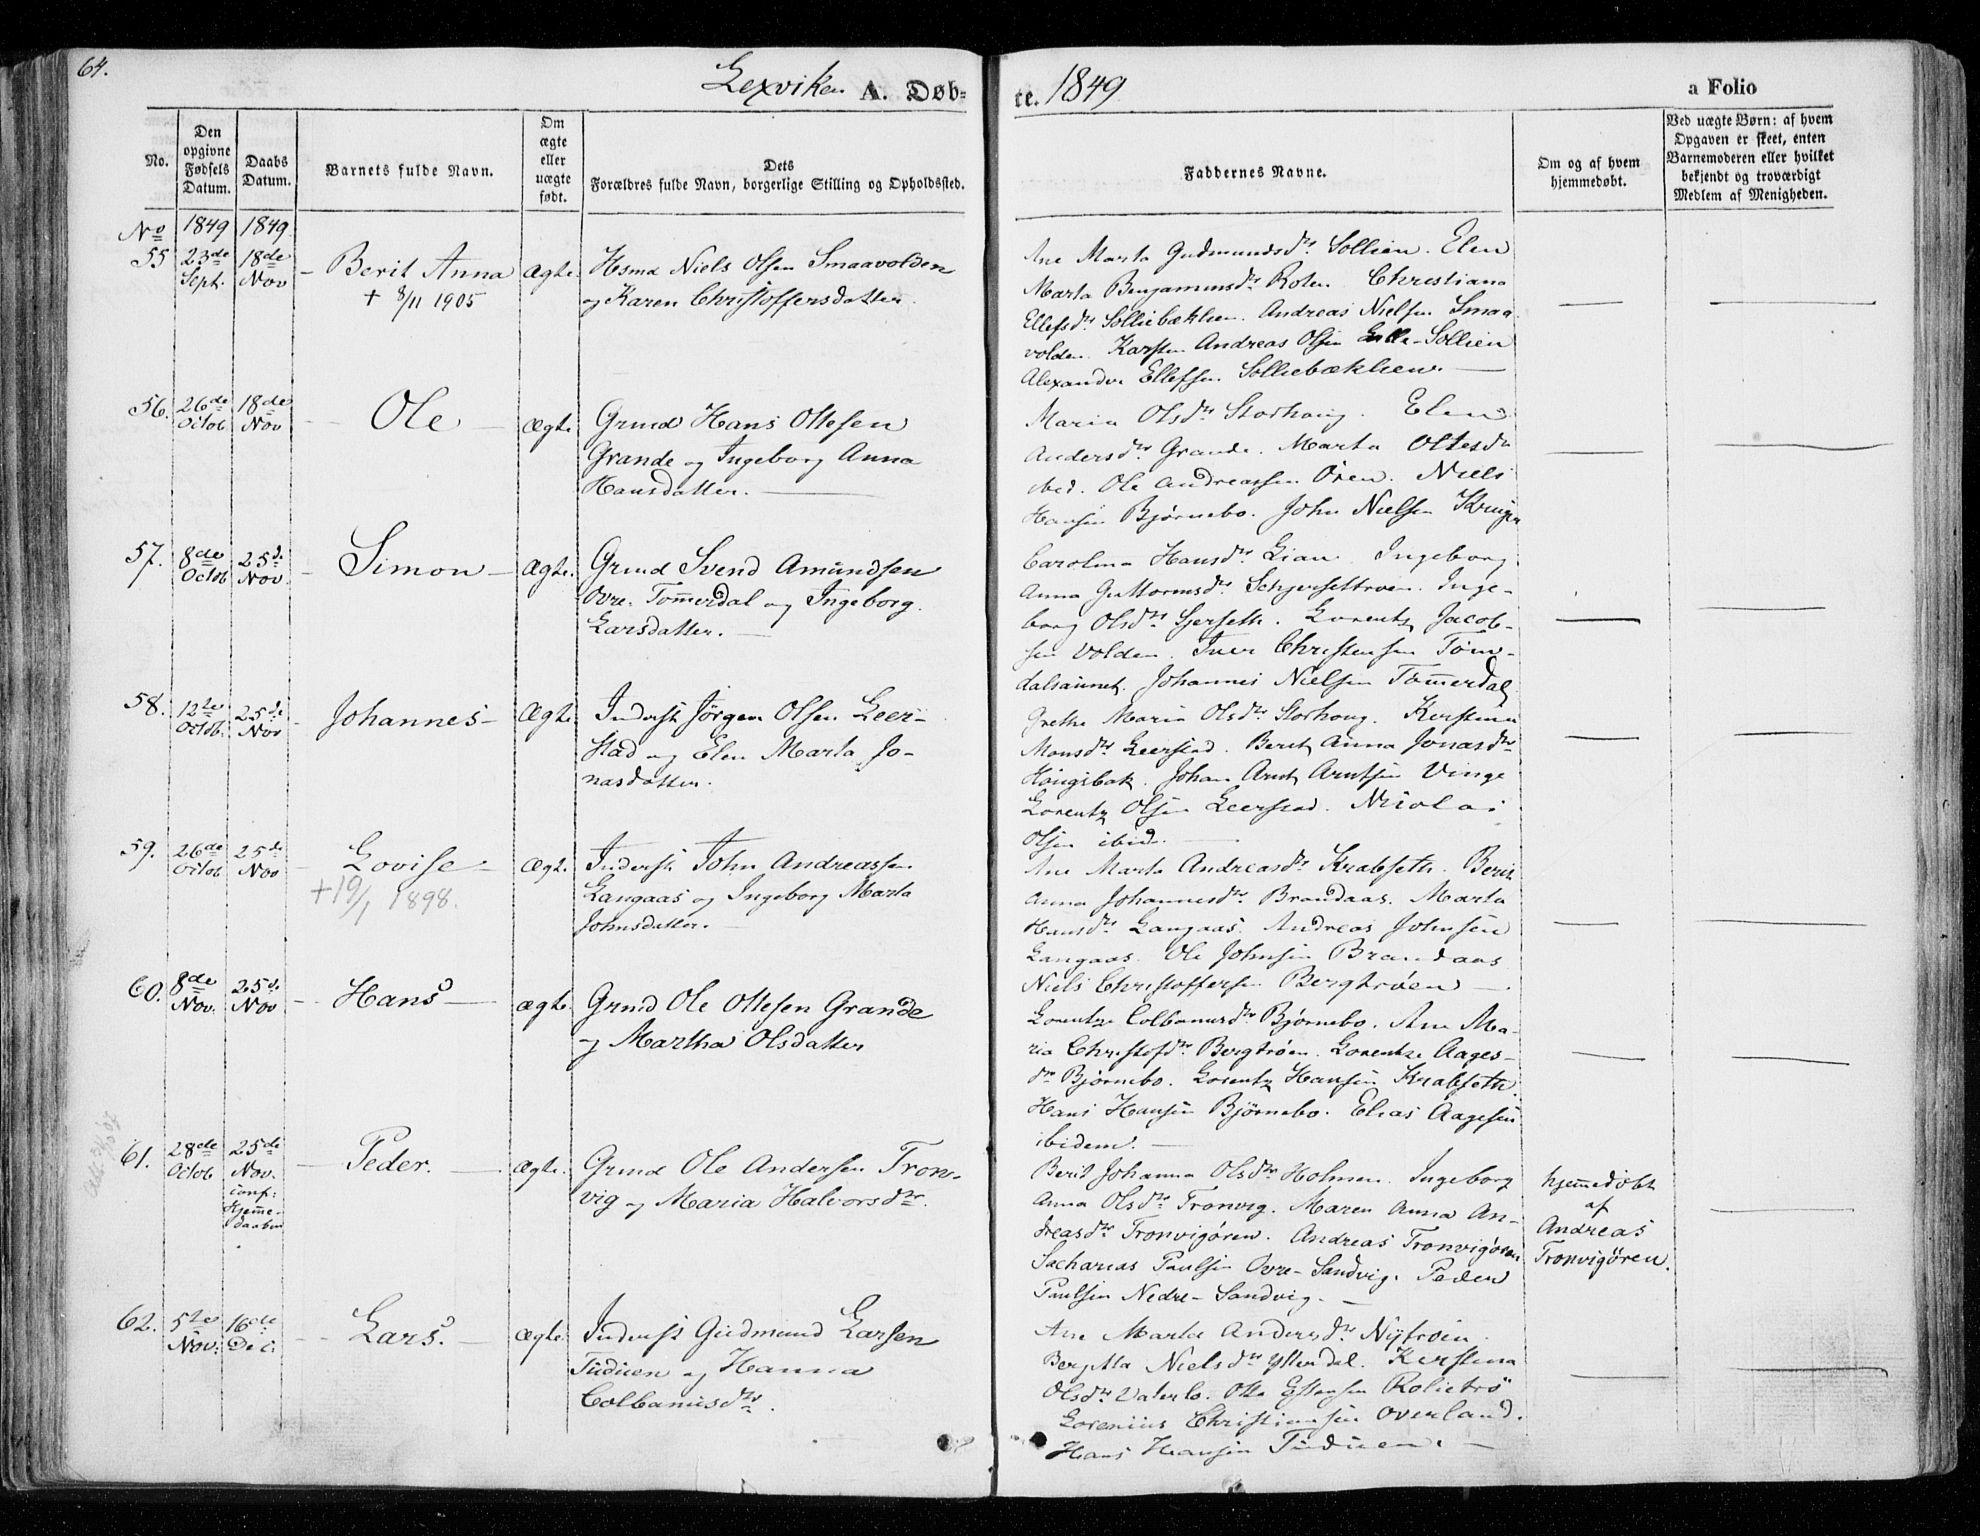 64.
Lexviken A. Døb-
te. 1849
a Folio
No.
Den opgivne Fødsels Datum.
Daabs Datum.
Barnets fulde Navn.
Om ægte eller uægte født.
Dets Forældres fulde Navn, borgerlige Stilling og Opholdssted.
Faddernes Navne.
Om og af hvem hjemmedøbt.
Ved uægte Børn: af hvem Opgaven er skeet, enten Barnemoderen eller hvilket bekjendt og troværdigt Medlem af Menigheden.
No 1849 1849
55 23de Sept. 18de Nov
Berit Anna
+ 8/11 1905
Ægte
Hsmd Niels Olsen Smaavolden
og Karen Christoffersdatter.
Ane Marta Gudmundsdtr Sollien. Elen
Marta Benjaminsdtr Roten. Christiana
Ellefsdtr Solliebækken. Andreas Nielsen Smaa
volden. Karsten Andreas Olsen Lille-Sollien
Alexander Ellefsen Solliebækken.
56. 26de Octob 18de Nov
Ole
Ægte
Grmd Hans Ottesen
Grande og Ingeborg Anna
Hansdatter.
Maria Olsdtr Storhaug. Elen
Andersdtr Grande. Marta Ottesdtr
ibid. Ole Andreassen Øren. Niels
Hansen Bjørnebo. John Nielsen
57. 8de Octob 25de Nov.
Simon
Ægte.
Grmd Svend Amundsen
Øvre-Tømerdal og Ingeborg
Larsdatter.
Carolina Hansdtr Lian. Ingeborg
Anna Guttormsdtr. Inge-
borg Olsdtr. Lorentz Jacob-
sen Volden. Iver Christensen Tøm-
dalsaunet. Johannes Nielsen Tømerdal
58. 12te Octob. 25de Nov
Johannes
Ægte
Inderst Jørgen Olsen Leer-
stad og Elen Marta Jo-
nasdatter.
Grethe Maria Olsdtr Storhaug. Kerstina
Monsdtr Leerstad. Berit Anna Jonasdtr
Haugsbak. Johan Arnt Arntsen Vinge
Lorentz Olsen Leerstad. Nicolai
Olsen ibid.
59. 26de Octob 25de Nov
Lovise
+19/1 1898.
Ægte
Inderst John Andreassen
Langaas og Ingeborg Marta
Johnsdatter.
Ane Marta Andreasdtr Krabseth. Berit
Anna Johannesdtr Brandaas. Marta
Hansdtr Langaas. Andreas Johnsen
Langaas. Ole Johnsen Brandaas
Niels Christoffersen Bergtrøen
60. 8de Nov. 25de Nov
Hans
Ægte
Grmd Ole Ottesen Grande
og Martha Olsdatter
Lorentze Colbanusdtr Bjørnebo. Ane Ma-
ria Christofdtr Bergtrøen. Lorentze Aages-
dtr Bjørnebo. Lorentz Hansen Krabseth.
Hans Hansen Bjørnebo. Elias Aagesen
ibidem.
61. 28de Octob 25de Nov. conf: Hjemme-daaben
Peder.
Ægte.
Grmd Ole Andersen Tron-
vig og Maria Halvorsdtr.
Berit Johanna Olsdtr Holmen. Ingeborg
Anna Olsdtr Tronvig. Maren Anna An-
dreasdtr Tronvigøren. Andreas Tronvigøren
Sacharias Paulsen Øvre-Sandvig. Peder
Paulsen Nedre-Sandvig.
hjemmedøbt
af
Andreas
Tronvigøren.
62. 5te Nov. 16de Dec.
Lars.
Ægte.
Inderst Gudmund Larsen
Tuduen og Hanna
Colbanusdtr.
Ane Marta Andersdtr Nytrøen.
Beritta Nielsdtr Ytterdal. Kerstina
Olsdtr Vaterlo. Otte Rolietrø
Lorenius Christiansen Overland.
Hans Hansen Tuduen.